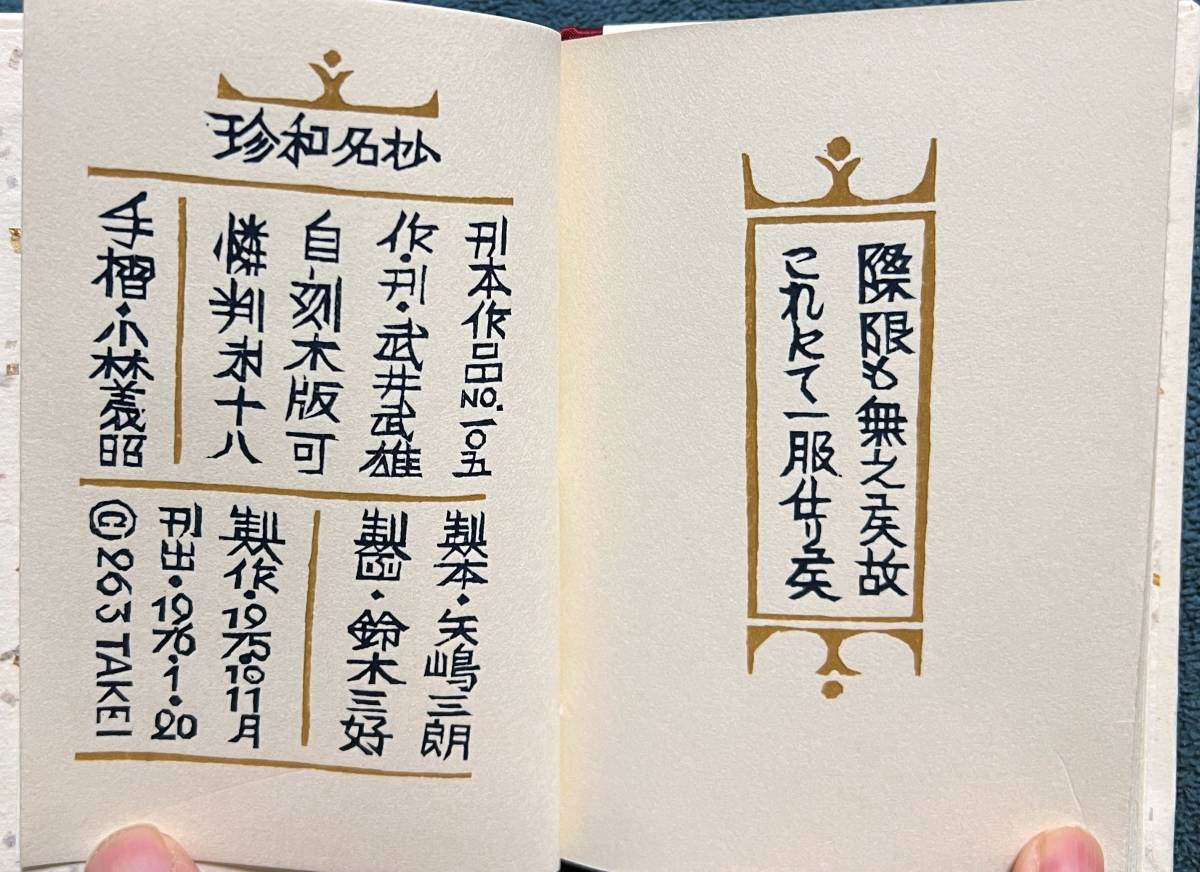 際限も無之候故
これにて一服仕り候
珍和名抄
刊本作品NO.一〇五
作・刊・武井武雄
自刻木版可
憐判 十八
手摺・小林義昭
製本・矢嶋三朗
製函・鈴木三好
製作・1975・10 11月
刊出・1976・1・20
©263 TAKEI